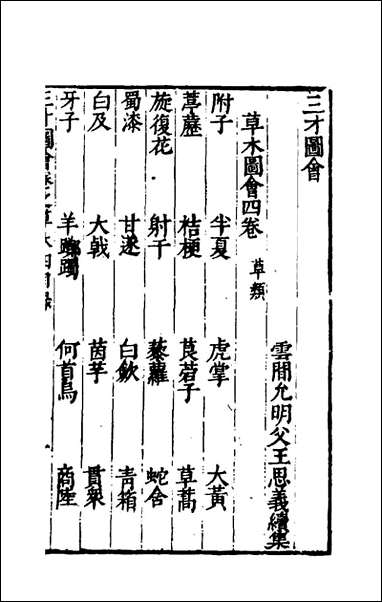 三才圖會
雲間允明父王思義續集
草木圖會四卷 草類
附子 半夏 虎掌 大黃
葶藶 桔梗 莨菪子 草蒿
旋復花 射干 藜蘆 蛇含
蜀漆 甘遂 白歛 青箱
白及 大戟 茵芋 貫衆
牙子 羊躑躅 何首烏 商陸
三才圖會 草木四目錄